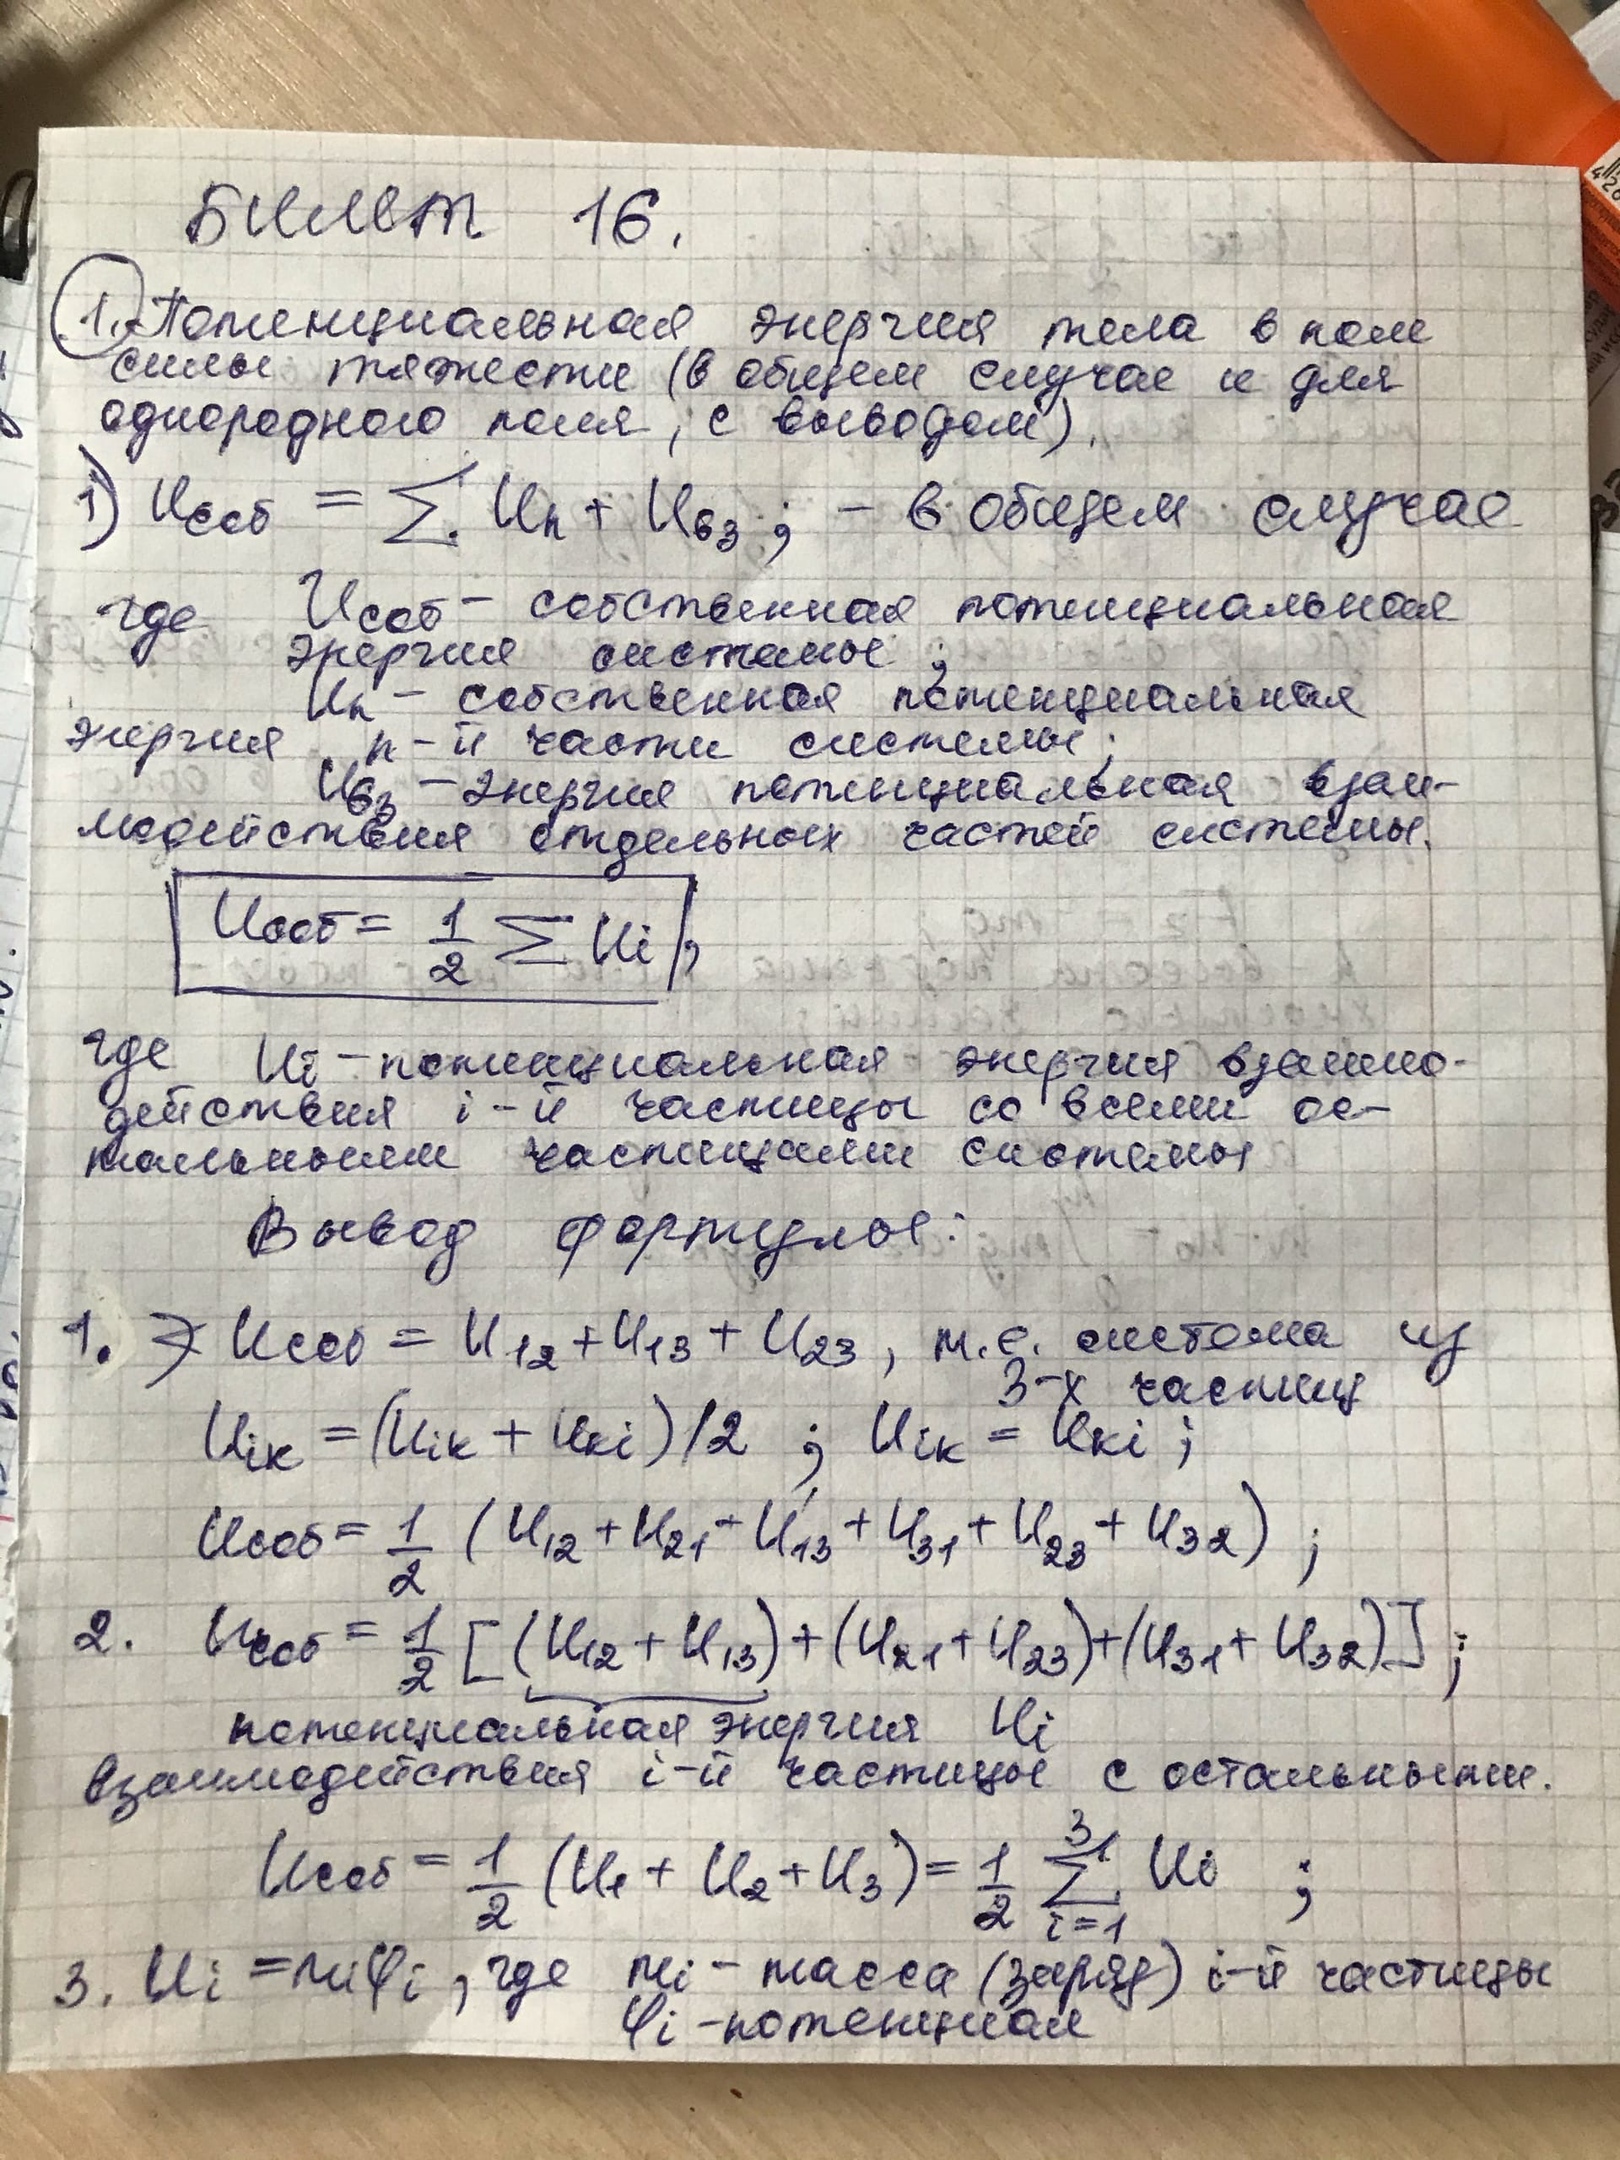 БИЛЕТ 16.
1. Потенциальная энергия тела в поле
силы тяжести (в общем случае и для
однородного поля, с выводом).
1) Uсоб = Σ Un + Uвз ; - в общем случае
где Uсоб - собственная потенциальная
энергия системы ;
Un - собственная потенциальная
энергия n-й части системы ;
Uвз - энергия потенциальная взаи-
модействия отдельных частей системы.
Uсоб = 1/2 Σ Ui ,
где Ui - потенциальная энергия взаимо-
действия i-й частицы со всеми ос-
тальными частицами системы
Вывод формулы:
1. Uсоб = U12 + U13 + U23 , т.е. система из
3-х частиц
Uik = (Uik + Uki)/2 ; Uik = Uki ;
Uсоб = 1/2 (U12 + U21 + U13 + U31 + U23 + U32) ;
2. Uсоб = 1/2 [(U12 + U13) + (U21 + U23) + (U31 + U32)] ;
потенциальная энергия Ui
взаимодействия i-й частицы с остальными.
Uсоб = 1/2 (U1 + U2 + U3) = 1/2 Σ3i=1 Ui ;
3. Ui = miφi , где mi - масса (заряд) i-й частицы
φi - потенциал